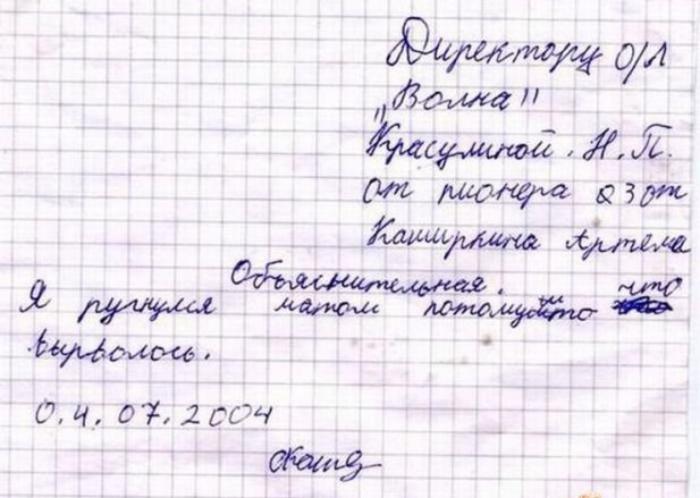 Директору О/Л
„Волна"
Красулиной. Н. П.
от пионера 23 от
Каширкина Артема
Объяснительная.
Я ругнулся матом потому что что
вырволось.
0.4.07.2004